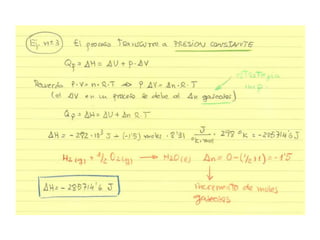 Ej. nº 3 El proceso transcurre a PRESION CONSTANTE
Qp = ΔH = ΔU + P·ΔV
Recuerda P·V = n·R·T ⇒ P ΔV = Δn·R·T
(el ΔV en un proceso se debe al Δn gaseosos)
Qp = ΔH = ΔU + Δn R·T
ΔH = -282·10³ J + (-1'5) moles · 8'31 J/ºK·mol · 298 ºK = -285714'6 J
H₂(g) + ½ O₂(g) → H₂O(l) Δn = 0 - (½+1) = -1'5
ΔH = -285714'6 J
incremento de moles
gaseosos